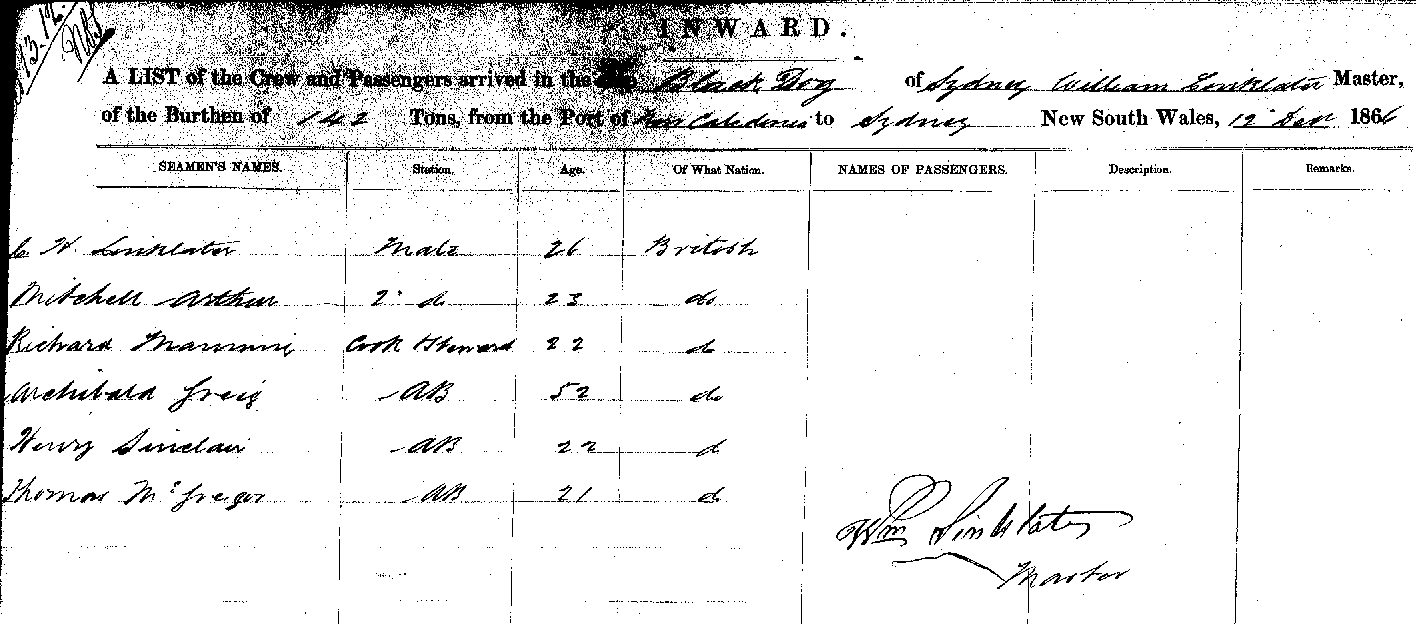 13.12.
INWARD.
A LIST of the Crew and Passengers arrived in the Black Dog of Sydney William Linklater Master,
of the Burthen of 142 Tons, from the Port of New Caledonia to Sydney New South Wales, 12 Decr 1866
SEAMEN'S NAMES. Station. Age. Of What Nation. NAMES OF PASSENGERS. Description. Remarks.
C H Linklater Mate 26 British
Mitchell Arthur 2d do 23 do
Richard Cook Steward 22 do
Archibald Greig AB 52 do
Henry Sinclair AB 22 do
Thomas McGregor AB 21 do
Wm Linklater
Master